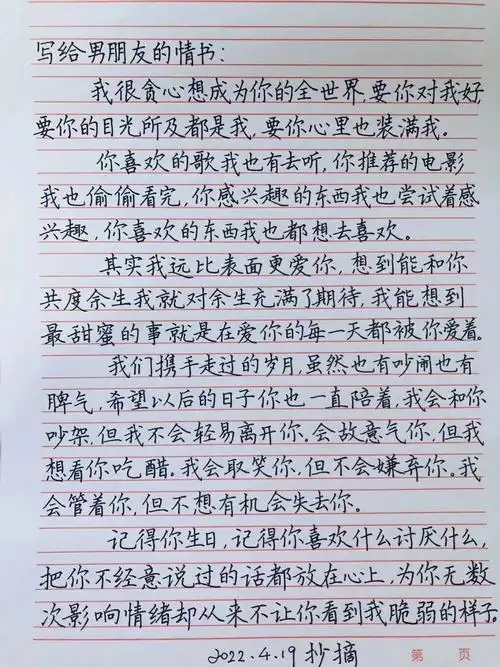 写给男朋友的情书：
我很贪心想成为你的全世界，要你对我好，
要你的目光所及都是我，要你心里也装满我。
你喜欢的歌我也有去听，你推荐的电影
我也偷偷看完，你感兴趣的东西我也尝试着感
兴趣，你喜欢的东西我也都想去喜欢。
其实我远比表面更爱你，想到能和你
共度余生我就对余生充满了期待，我能想到
最甜蜜的事就是在爱你的每一天都被你爱着。
我们携手走过的岁月，虽然也有吵闹也有
脾气，希望以后的日子你也一直陪着，我会和你
吵架，但我不会轻易离开你。会故意气你，但我
想看你吃醋。我会取笑你，但不会嫌弃你。我
会管着你，但不想有机会失去你。
记得你生日，记得你喜欢什么讨厌什么，
把你不经意说过的话都放在心上，为你无数
次影响情绪却从来不让你看到我脆弱的样子。
2022.4.19 抄摘
第 页